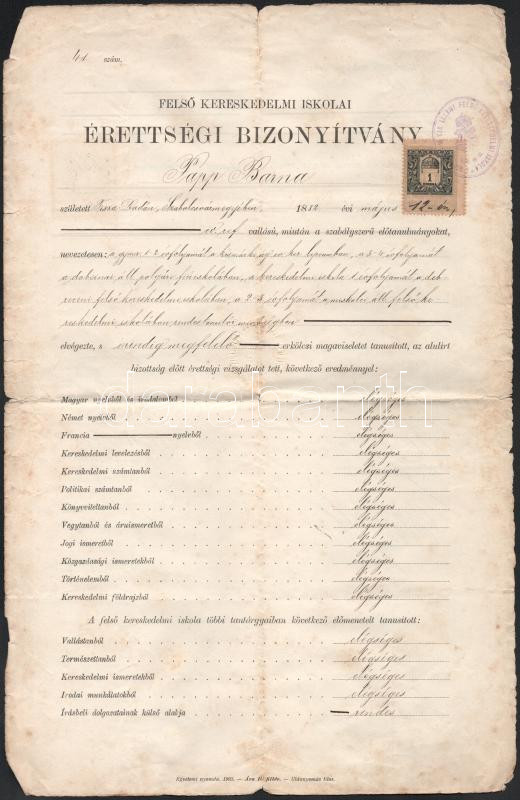 41 szám.
FELSŐ KERESKEDELMI ISKOLAI
ÉRETTSÉGI BIZONYÍTVÁNY
Papp Barna
1
született Tisza Szabolcsvármegyében, 18 évi május 12-én,
ev. ref vallású, miután a szabályszerű előtanulmányokat,
nevezetesen: a gymn. 1 2 évfolyamát a ev. ref. lyceumban, a 3 4 évfolyamát
a áll. polgári fiúiskolában, a kereskedelmi iskola 1 évfolyamát a deb-
receni felső kereskedelmi iskolában, a 2 3 évfolyamát a miskolci áll. felső ke-
reskedelmi iskolában rendes tanuló minőségben
elvégezte, s mindig megfelelő erkölcsi magaviseletet tanusított, az alulirt
bizottság előtt érettségi vizsgálatot tett, következő eredménynyel:
Magyar nyelvből és irodalomból elégséges
Német nyelvből elégséges
Francia nyelvből elégséges
Kereskedelmi levelezésből elégséges
Kereskedelmi számtanból elégséges
Politikai számtanból elégséges
Könyvviteltanból elégséges
Vegytanból és áruismeretből elégséges
Jogi ismeretből elégséges
Közgazdasági ismeretekből elégséges
Történelemből elégséges
Kereskedelmi földrajzból elégséges
A felső kereskedelmi iskola többi tantárgyaiban következő előmenetelt tanusitott:
Vallástanból elégséges
Természettanból elégséges
Kereskedelmi ismeretekből elégséges
Irodai munkálatokból elégséges
Írásbeli dolgozatainak külső alakja rendes
Egyetemi nyomda. 1903. — Ára 10 fillér. — Utánnyomás tilos.
darabanth